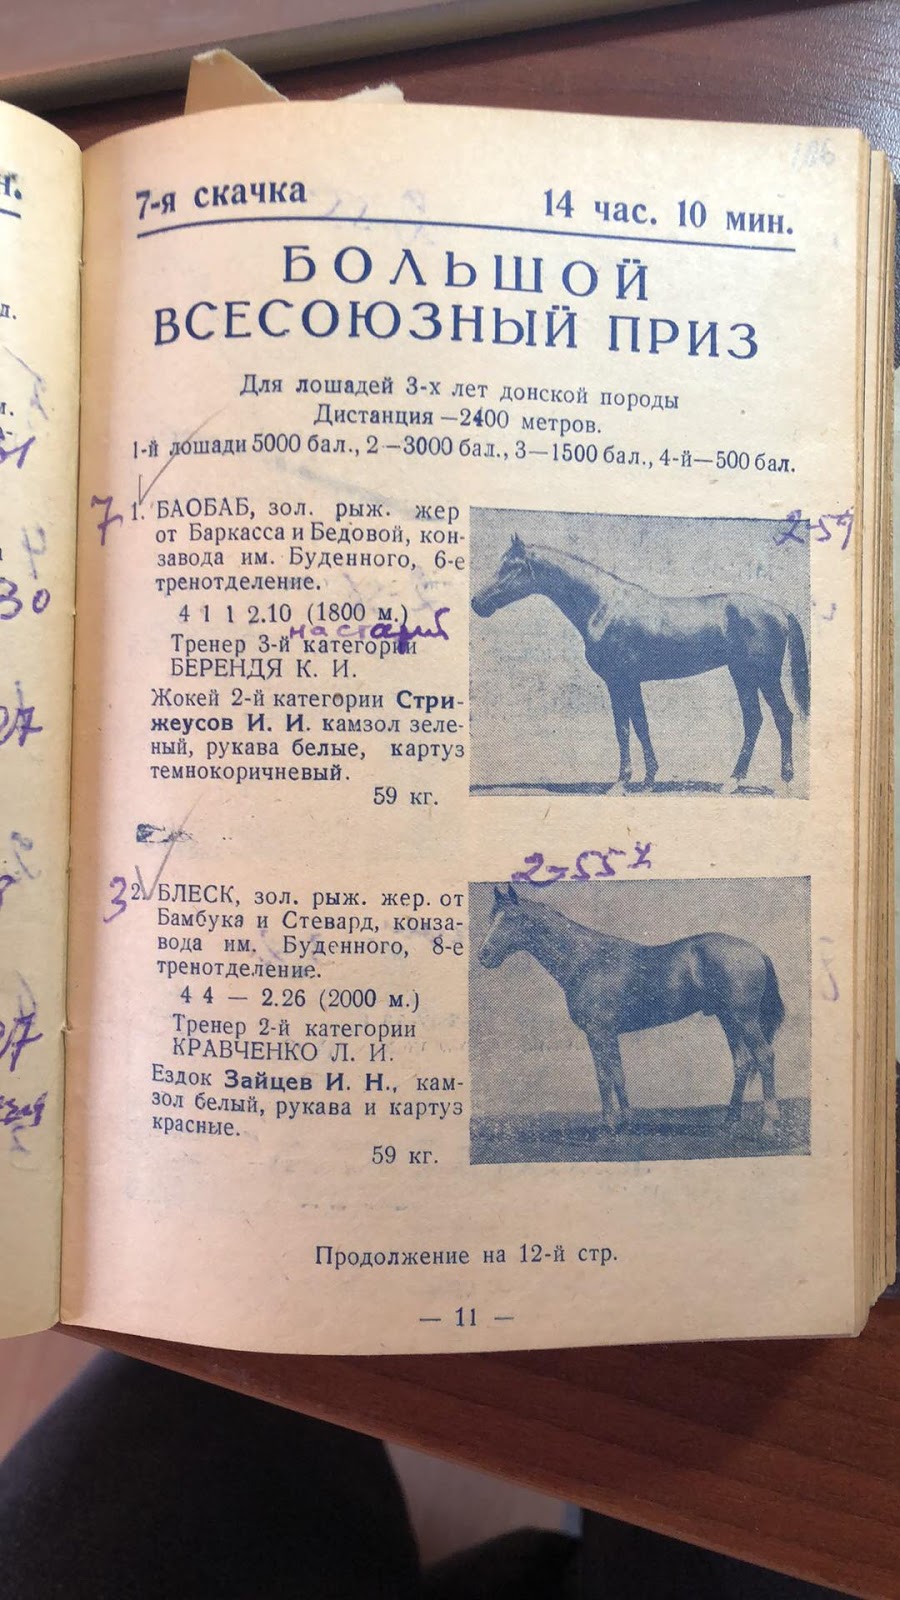 7-я скачка 14 час. 10 мин.
БОЛЬШОЙ
ВСЕСОЮЗНЫЙ ПРИЗ
Для лошадей 3-х лет донской породы
Дистанция —2400 метров.
1-й лошади 5000 бал., 2 —3000 бал., 3—1500 бал., 4-й—500 бал.
7 1. БАОБАБ, зол. рыж. жер
от Баркасса и Бедовой, кон-
завода им. Буденного, 6-е
тренотделение.
4 1 1 2.10 (1800 м.)
Тренер 3-й категории
БЕРЕНДЯ К. И.
Жокей 2-й категории Стри-
жеусов И. И. камзол зеле-
ный, рукава белые, картуз
темнокоричневый.
59 кг.
3 2. БЛЕСК, зол. рыж. жер. от
Бамбука и Стевард, конза-
вода им. Буденного, 8-е
тренотделение.
4 4 — 2.26 (2000 м.)
Тренер 2-й категории
КРАВЧЕНКО Л. И.
Ездок Зайцев И. Н., кам-
зол белый, рукава и картуз
красные.
59 кг.
Продолжение на 12-й стр.
— 11 —